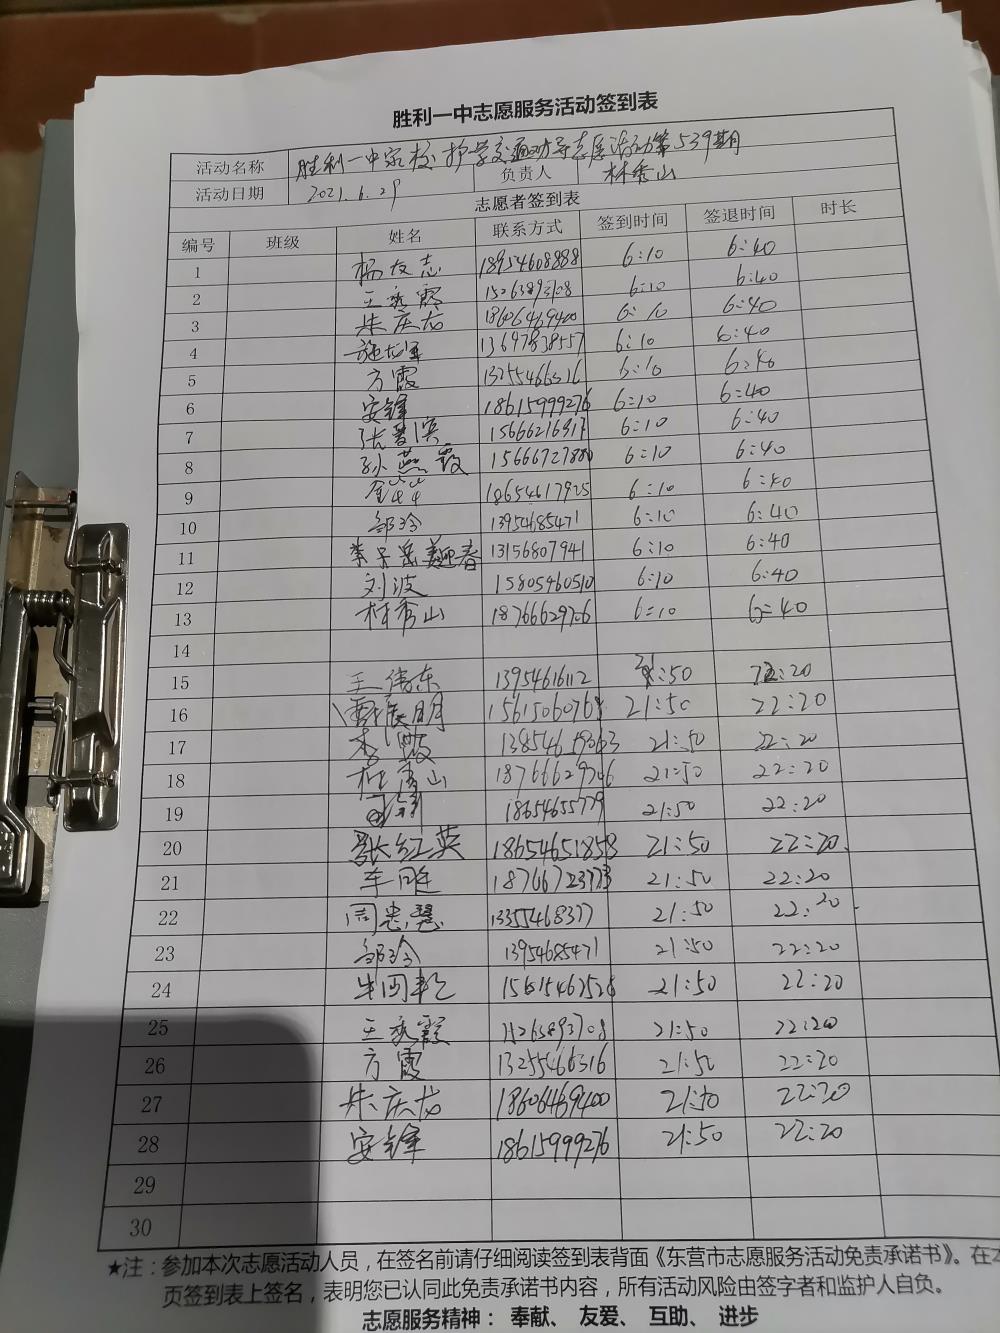 胜利一中志愿服务活动签到表
活动名称 胜利一中家校护学交通劝导志愿活动第539期
活动日期 2021.6.29 负责人 林秀山
志愿者签到表
编号 班级 姓名 联系方式 签到时间 签退时间 时长
1 杨友志 18954608888 6:10 6:40
2 王秀霞 15263893708 6:10 6:40
3 朱庆龙 18606469400 6:10 6:40
4 13697838557 6:10 6:40
5 方霞 13255466316 6:10 6:40
6 安锋 18615999276 6:10 6:40
7 6:10 6:40
8 孙燕霞 15666727880 6:10 6:40
9 18654617925 6:10 6:40
10 邹玲 13954685471 6:10 6:40
11 13156807941 6:10 6:40
12 刘波 15805460510 6:10 6:40
13 林秀山 18766629706 6:10 6:40
14
15 王伟东 13954616112 21:50 22:20
16 21:50 22:20
17 李霞 21:50 22:20
18 林秀山 21:50 22:20
19 18654655779 21:50 22:20
20 张红英 18654651858 21:50 22:20
21 21:50 22:20
22 周忠慧 13355468377 21:50 22:20
23 邹玲 13954685471 21:50 22:20
24 21:50 22:20
25 王秀霞 15263893708 21:50 22:20
26 方霞 13255466316 21:50 22:20
27 朱庆龙 18606469400 21:50 22:20
28 安锋 18615999276 21:50 22:20
29
30
★注：参加本次志愿活动人员，在签名前请仔细阅读签到表背面《东营市志愿服务活动免责承诺书》。在本
页签到表上签名，表明您已认同此免责承诺书内容，所有活动风险由签字者和监护人自负。
志愿服务精神： 奉献、 友爱、 互助、 进步